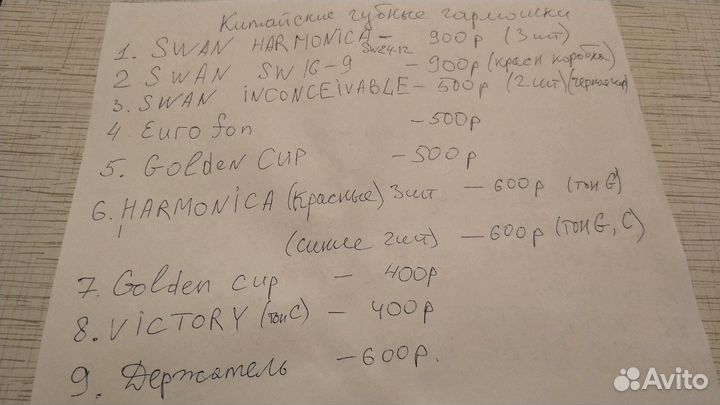 Китайские губные гармошки
1. SWAN HARMONICA – 900р (3шт)
SW24-12
2 SWAN SW16-9 – 900р (красн коробка)
3. SWAN iNCONCEiVABLE – 500р (2шт)
4 Euro fon – 500р
5. Golden CUP – 500р
6. HARMONiCA (Красные) 3шт – 600р (тон G)
(синие 2шт) – 600р (тон G, C)
7. Golden cup – 400р
8. ViCTORY (тон C) – 400р
9. Держатель – 600р.
Avito